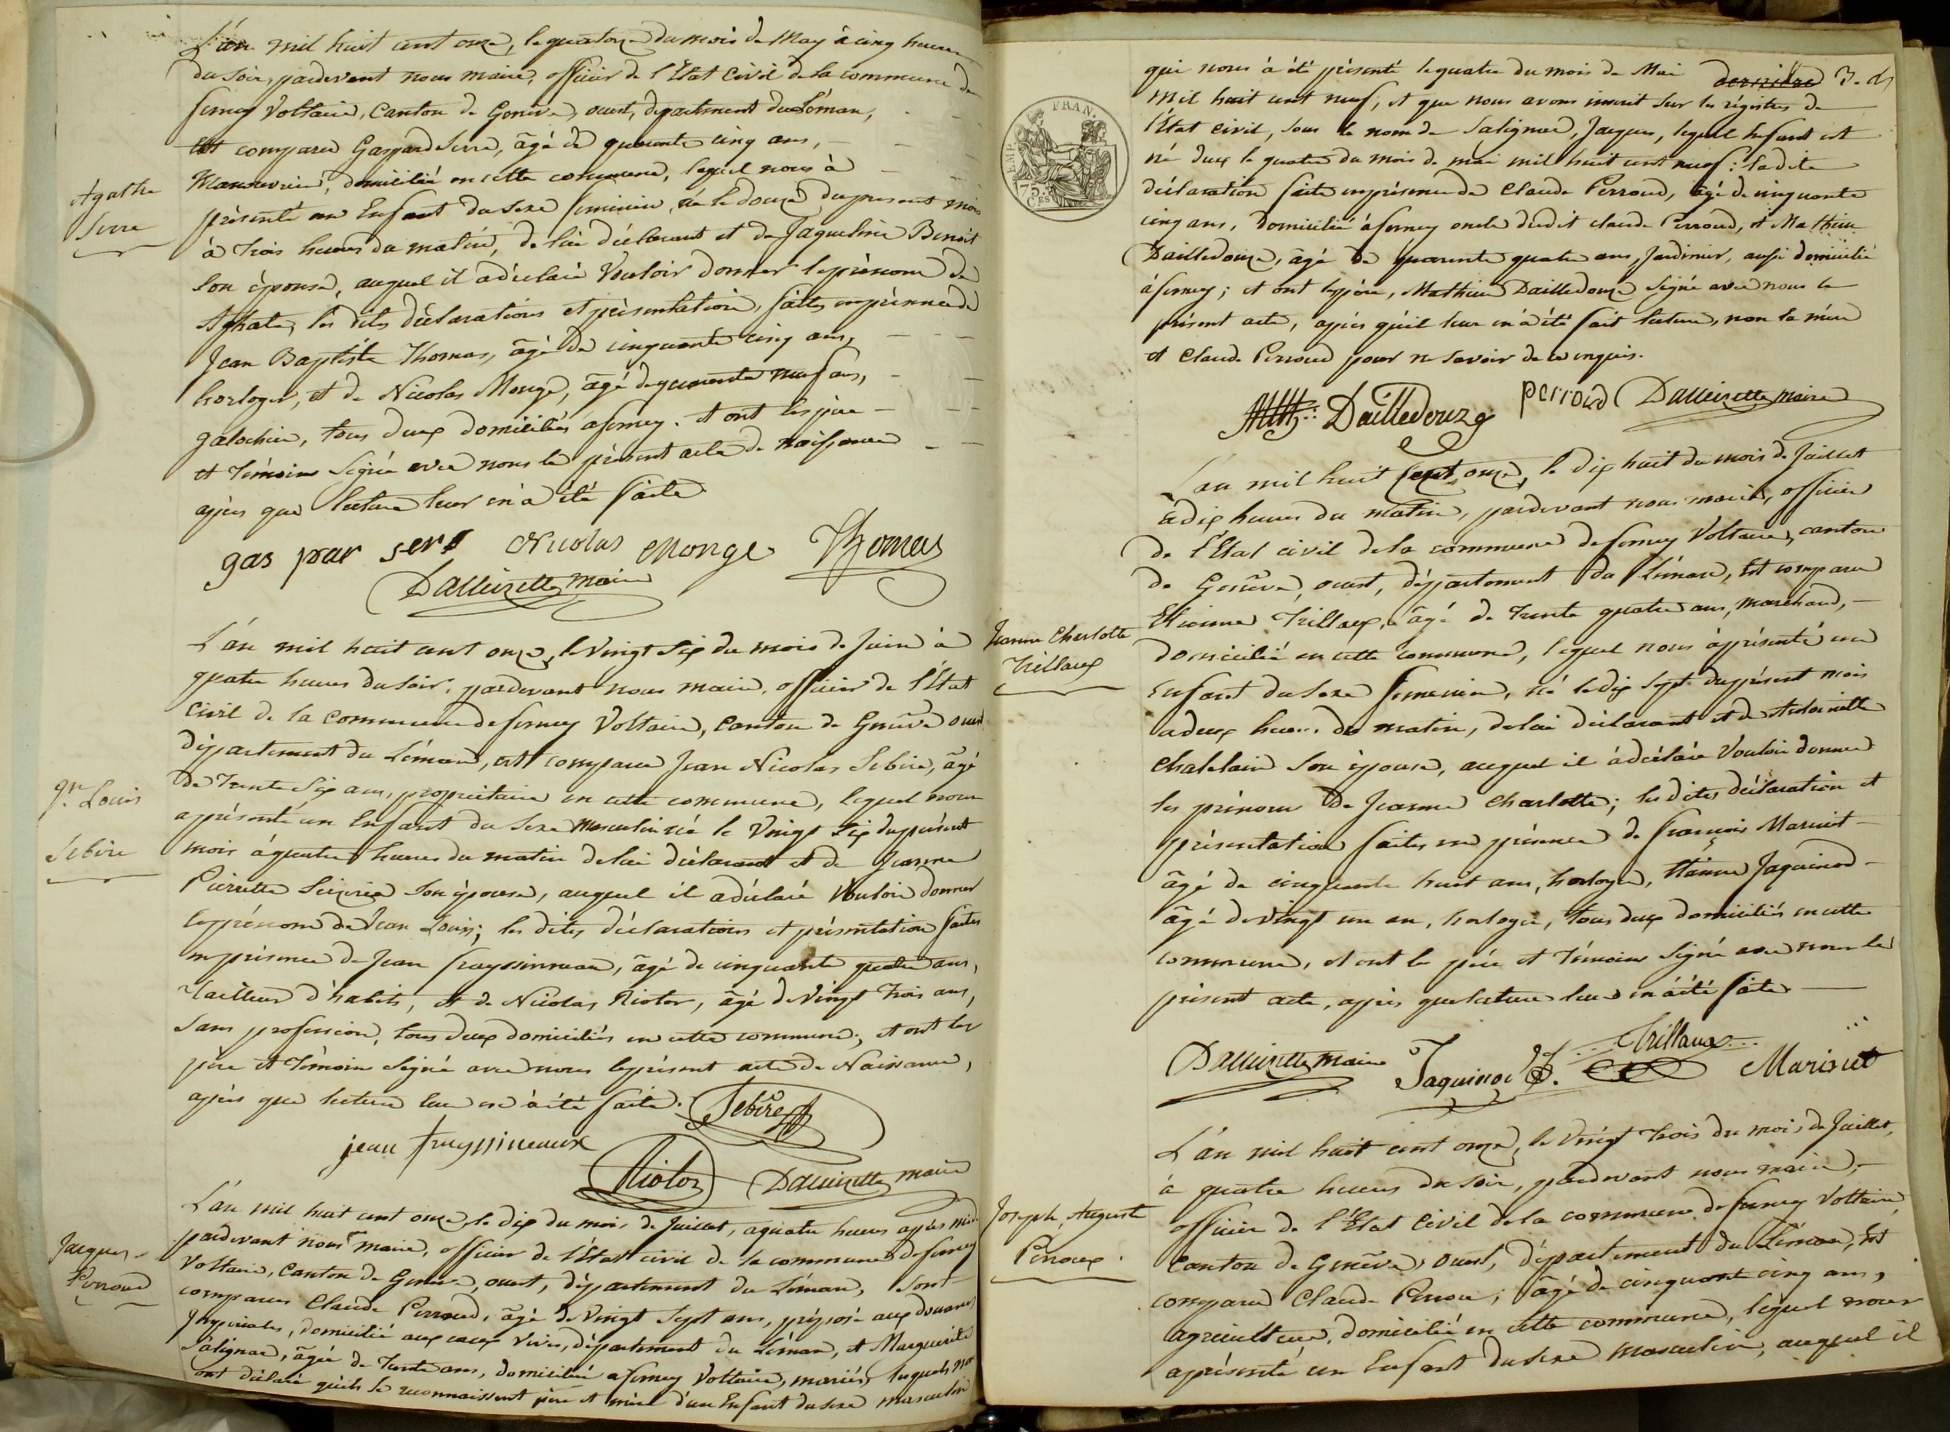 L'an mil huit cent onze, le quatorze du mois de May à cinq heures
du soir, pardevant nous maire, officier de l'Etat Civil de la commune de
ferney Voltaire, Canton de Genêve, ouest, departement du Léman,
Est comparu Gaspard Serre, âgé de quarante cinq ans,
Manouvrier, domicilié en cette commune, lequel nous à
Agathe
Serre
présenté un Enfant du Sexe feminin, né le douze du present mois
à trois heures du matin, de lui déclarant et de Jaqueline Benoit
Son épouse, auquel il a déclaré Vouloir donner le prénom de
Aghate, les dites déclarations et présentation faites en présence de
Jean Baptiste Thomas, âgé de cinquante cinq ans,
horloger, et de Nicolas Monge, âgé de quarante neuf ans,
galochier, tous deux domiciliés à ferney. et ont les père
et témoins Signé avec nous le présent acte de naissance
après que lecture leur en à été faite
gas par sere Nicolas Monge Thomas
maire
L'an mil huit cent onze, le Vingt Six du mois de Juin à
quatre heures du Soir, pardevant nous maire, officier de l'État
Civil de la commune de ferney Voltaire, Canton de Genêve ouest
département du Léman, est comparu Jean Nicolas Sebire, âgé
Jn. Louis
Sebire
de trente Six ans, propriétaire en cette commune, lequel nous
a présenté un Enfant du Sexe Masculin né le Vingt Six du présent
mois à quatre heures du matin de lui déclarant et de Jeanne
Pierrette son épouse, auquel il a déclaré Vouloir donner
les prénoms de Jean Louis; les dites déclarations et présentation faites
en présence de Jean frayssineaux, âgé de cinquante quatre ans,
tailleur d'habits, et de Nicolas Riolor, âgé de Vingt trois ans,
Sans profession, tous deux domiciliés en cette commune; et ont les
père et témoins Signé avec nous le présent acte de Naissance,
après que lecture leur en à été faite. Sebire
jean frayssineaux
Riolor maire
L'an mil huit cent onze le dix du mois de Juillet, à quatre heures après midi
Jacques
Perroud
pardevant nous maire, officier de l'État civil de la commune de ferney
Voltaire, Canton de Geneve, ouest, département du Léman, Sont
comparus Claude Perroud, âgé de Vingt Sept ans, préposé aux douanes
Impériales, domicilié aux eaux Vives, département du Léman, et Marguerite
Salignac, âgée de trente ans, domiciliée à ferney Voltaire, mariés, lesquels nous
ont déclaré qu'ils se reconnaissent père et mère d'un Enfant du sexe masculin
qui nous à été présenté le quatre du mois de Mai derniere
mil huit cent neuf, et que nous avons inscrit Sur les régistres de
l'Etat civil, sous le nom de Salignac, Jacques, lequel Enfant est
né le quatre du mois de mai mil huit cent neuf: la dite
déclaration faite en présence de Claude Perroud, âgé de cinquante
cinq ans, domicilié à ferney oncle dudit claude Perroud, et Mathieu
Dailledouze, âgé de quarante quatre ans, Jardinier, aussi domicilié
à ferney; et ont le père, Mathieu Dailledouze Signé avec nous le
présent acte, après qu'il leur en à été fait lecture, non la mère
et Claude Perroud pour ne Savoir de ce enquis.
FRAN.
EMP.
75
CES
Dailledouze perroud maire
L'an mil huit Cent onze, le dix huit du mois de Juillet
à dix heures du matin, pardevant nous maire, officier
de l'Etat civil de la commune de ferney Voltaire, canton
de Genêve, ouest, département du Léman, Est comparu
Jeanne Charlotte
Trillaux
Etienne Trillaux, âgé de trente quatre ans, Marchand,
domicilié en cette commune, lequel nous à présenté un
Enfant du Sexe feminin, né le dix Sept du présent mois
à deux heures du matin, de lui déclarant et de Antoinette
Chatelain Son épouse, auquel il à déclaré Vouloir donner
les prénoms de Jeanne Charlotte; les dites déclaration et
présentation faites en présence de françois Maricut
âgé de cinquante huit ans, horloger, Jaquinod
âgé de Vingt un an, horloger, tous deux domiciliés en cette
commune, et ont le père et témoins Signé avec nous le
présent acte, après que lecture leur en à été faite
Trillaux
maire Jaquinod Maricut
L'an mil huit cent onze, le Vingt trois du mois de Juillet,
à quatre heures du Soir, pardevant nous maire,
Joseph, August
Perroux.
officier de l'Etat Civil de la commune de ferney Voltaire
Canton de Genêve, Ouest, département du Léman, Est
comparu Claude Perrou, âgé de cinquante cinq ans,
agriculteur, domicilié en cette commune, lequel nous
a présenté un Enfant du sexe masculin, auquel il